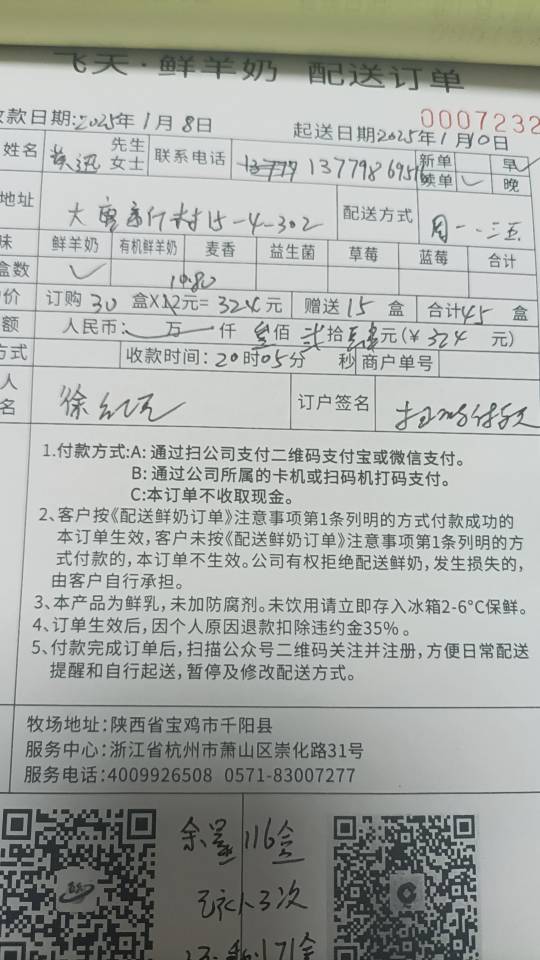 飞天·鲜羊奶 配送订单
0007232
收款日期:2025年1月8日 起送日期2025年1月10日
姓名 先生 女士 联系电话 新单 早✓
续单✓ 晚
地址 15-4-302 配送方式
味 鲜羊奶 有机鲜羊奶 麦香 益生菌 草莓 蓝莓 合计
盒数 ✓
10.80
价 订购30盒X12元=324元 赠送15盒 合计45盒
额 人民币: 万 仟 叁佰 贰拾 元(¥324元)
方式 收款时间:20时05分 秒 商户单号
人
名 订户签名
1.付款方式:A:通过扫公司支付二维码支付宝或微信支付。
B:通过公司所属的卡机或扫码机打码支付。
C:本订单不收取现金。
2、客户按《配送鲜奶订单》注意事项第1条列明的方式付款成功的
本订单生效,客户未按《配送鲜奶订单》注意事项第1条列明的方
式付款的,本订单不生效。公司有权拒绝配送鲜奶,发生损失的,
由客户自行承担。
3、本产品为鲜乳,未加防腐剂。未饮用请立即存入冰箱2-6°C保鲜。
4、订单生效后,因个人原因退款扣除违约金35%。
5、付款完成订单后,扫描公众号二维码关注并注册,方便日常配送
提醒和自行起送,暂停及修改配送方式。
牧场地址:陕西省宝鸡市千阳县
服务中心:浙江省杭州市萧山区崇化路31号
服务电话:4009926508 0571-83007277
余量116盒
3次
171盒